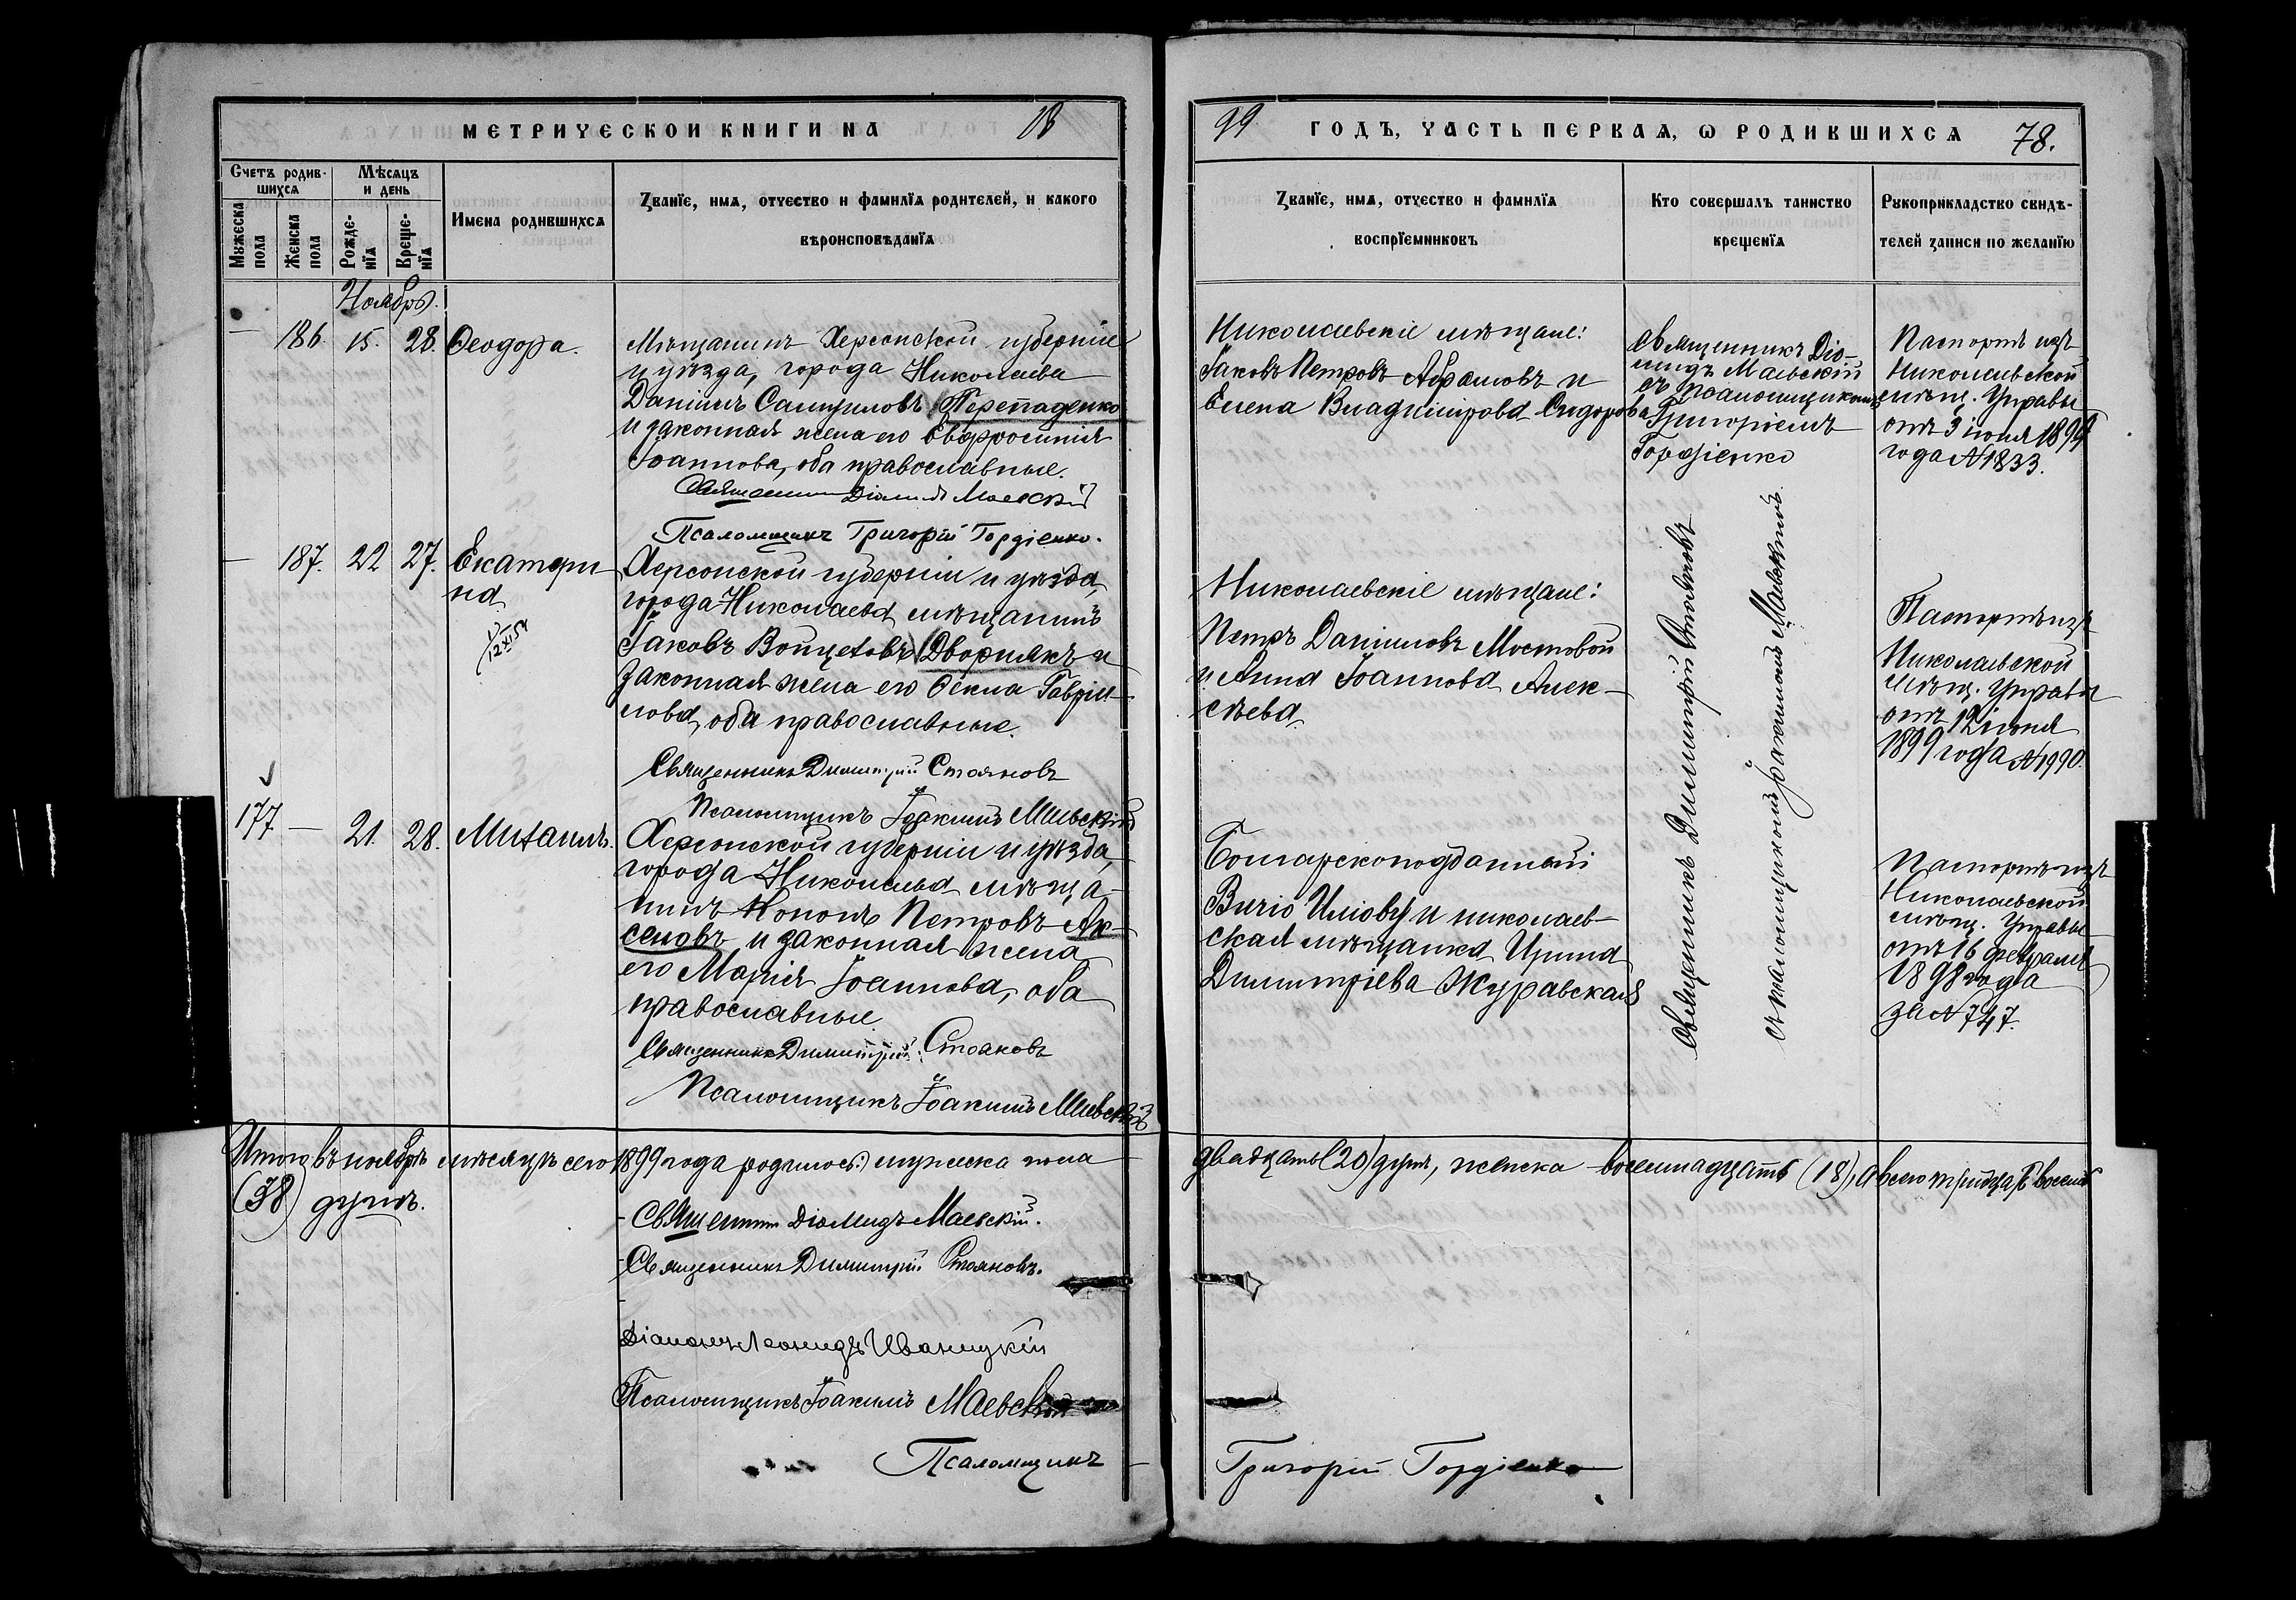 МЕТРИЧЕСКОЙ КНИГИ НА 18
Счетъ родив-
шихся
Мѣсяцъ
и день
Мужеска
пола
Женска
пола
Рожде-
нїя
Креще-
нїя
Имена родившихся
Званїе, имя, отчество и фамилїя родителей, и какого
вѣроисповѣданїя
Ноябрь.
— 186. 15. 28. Ѳеодора.
Мѣщанинъ Херсонской губерніи
и уѣзда, города Николаева
Даніилъ Самуиловъ Перепаденко
и законная жена его Евфросинія
Іоаннова, оба православные.
Священникъ Діомидъ Маевскій
Псаломщикъ Григорій Гордіенко.
— 187. 22 27. Екатери-
на
Херсонской губерніи и уѣзда,
города Николаева мѣщанинъ
Іаковъ Дворнякъ и
законная жена его Ѳекла Гаврі-
лова, оба православные.
Священникъ Димитрій Стояновъ
Псаломщикъ Іоакимъ Маевскій
177 — 21. 28. Михаилъ.
Херсонской губерніи и уѣзда,
города Николаева мѣща-
нинъ Кононъ Петровъ Ак-
сеновъ и законная жена
его Марія Іоаннова, оба
православные.
Священникъ Димитрій Стояновъ
Псаломщикъ Іоакимъ Маевскій
Итого въ ноябрѣ мѣсяцѣ сего 1899 года родилось: мужеска пола
(38) душъ.
- Священникъ Діомидъ Маевскій.
- Священникъ Димитрій Стояновъ.
Діаконъ Леонидъ Иваницкій
Псаломщикъ Іоакимъ Маевскій
Псаломщикъ
99 ГОДЪ, ЧАСТЬ ПЕРВАЯ, Ѡ РОДИВШИХСЯ 78.
Званїе, имя, отчество и фамилїя
воспрїемниковъ
Кто совершалъ таинство
крещенїя
Рукоприкладство свидѣ-
телей записи по желанїю
Николаевскіе мѣщане:
Іаковъ Петровъ Абрамовъ и
Елена Владимірова Сидорова
Священникъ Діо-
мидъ Маевскій
съ псаломщикомъ
Григоріемъ
Гордіенко
Паспортъ изъ
Николаевской
мѣщ. Управы
отъ 3 іюня 1899
года № 1833.
Николаевскіе мѣщане:
Петръ Даніиловъ Мостовой
и Анна Іоаннова Алек-
сѣева
Священникъ Димитрій Стояновъ
съ псаломщикомъ Іоакимомъ Маевскимъ
Паспортъ изъ
Николаевской
мѣщ. Управы
отъ 12 іюня
1899 года № 1990.
Болгарскоподданный
и николаев-
ская мѣщанка Ирина
Димитріева Журавская
Паспортъ изъ
Николаевской
мѣщ. Управы
отъ 16 февраля
1898 года
за № 747.
двадцать (20) душъ, женска — восемнадцать (18), а всего тридцать восемь
Григорій Гордіенко